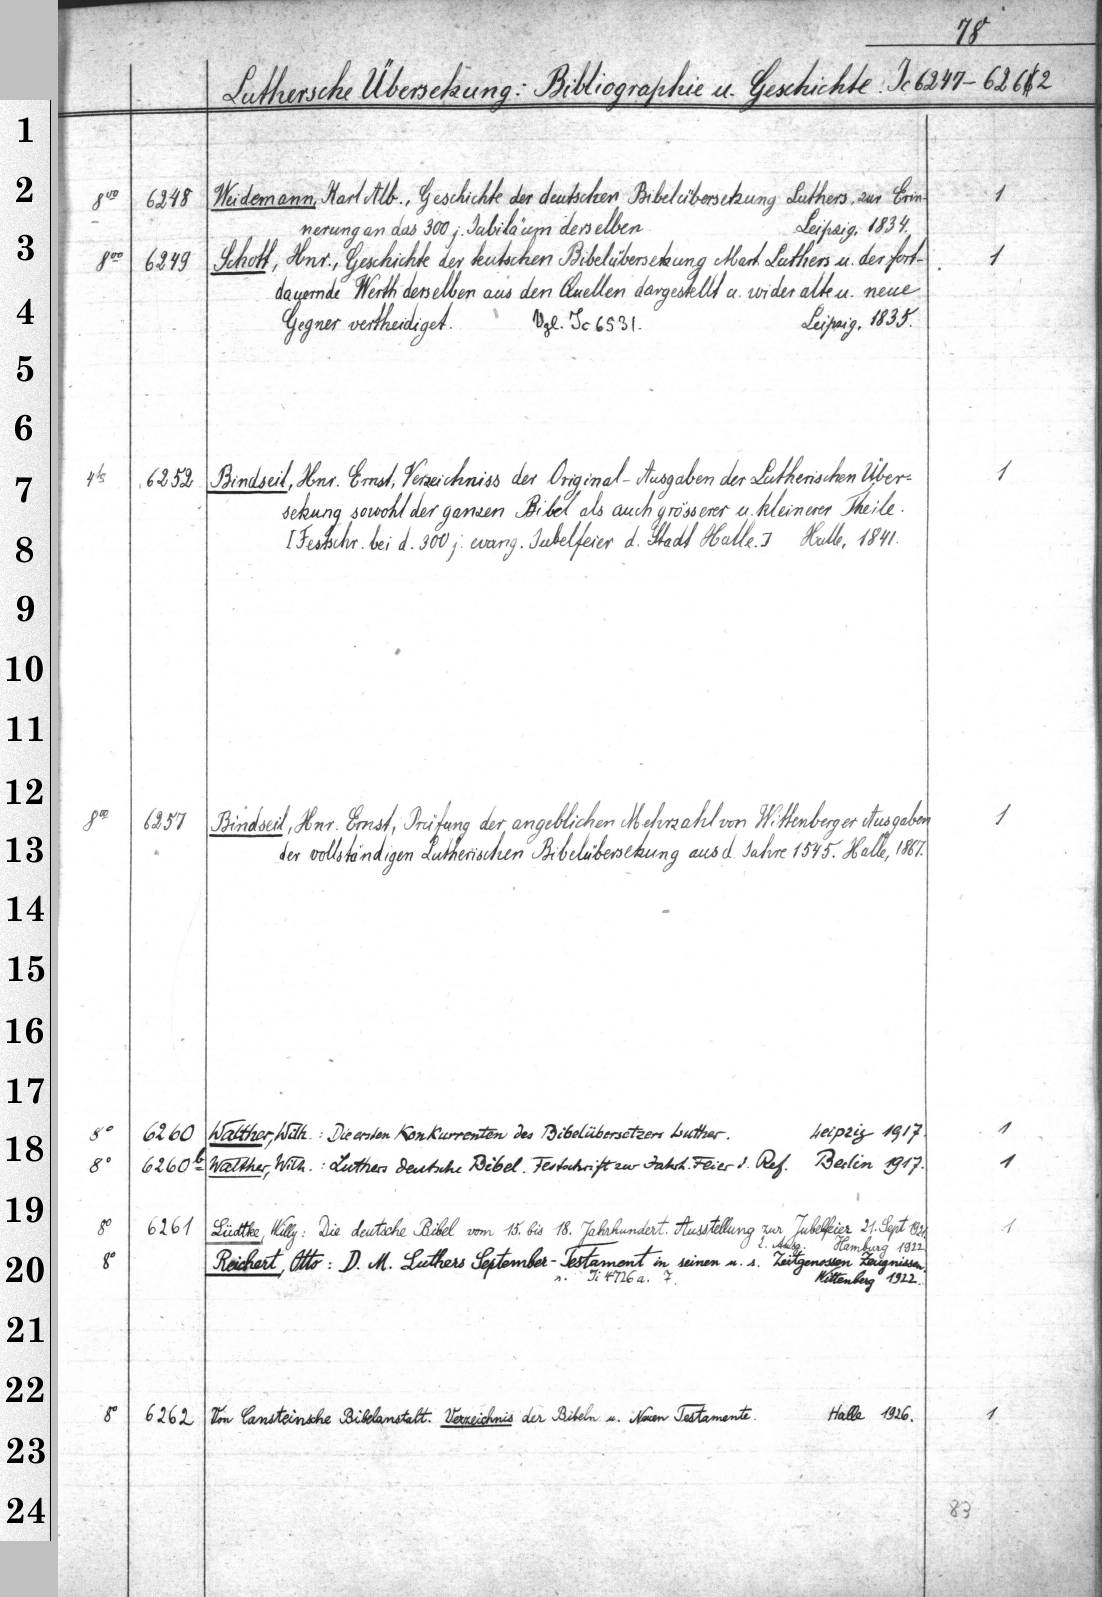 78
Luthersche Übersetzung: Bibliographie u. Geschichte. Ic 6247-6262
1
2
8vo 6248 Weidemann, Karl Alb., Geschichte der deutschen Bibelübersetzung Luthers, zur Erin- 1
nerung an das 300 j. Jubiläum derselben. Leipzig, 1834.
3
8vo 6249 Schott, Hnr., Geschichte der teutschen Bibelübersetzung Mart. Luthers u. der fort- 1
dauernde Werth derselben aus den Quellen dargestellt u. wider alte u. neue
4
Gegner vertheidiget. Vgl. Ic 6531. Leipzig, 1835.
5
6
7
4to 6252 Bindseil, Hnr. Ernst, Verzeichniss der Original-Ausgaben der Lutherischen Über= 1
setzung sowohl der ganzen Bibel als auch grösserer u. kleinerer Theile.
8
[Festschr. bei d. 300 j. evang. Jubelfeier d. Stadt Halle.] Halle, 1841.
9
10
11
12
8vo 6257 Bindseil, Hnr. Ernst, Prüfung der angeblichen Mehrzahl von Wittenberger Ausgaben 1
13
der vollständigen Lutherischen Bibelübersetzung aus d. Jahre 1545. Halle, 1867.
14
15
16
17
8° 6260 Walther, Wilh.: Die ersten Konkurrenten des Bibelübersetzers Luther. Leipzig 1917. 1
18
8° 6260b Walther, Wilh.: Luthers deutsche Bibel. Festschrift zur Jahrh. Feier d. Ref. Berlin 1917. 1
19
8° 6261 Lüdtke, Willy: Die deutsche Bibel vom 15. bis 18. Jahrhundert. Ausstellung zur Jubelfeier 21. Sept 1921. 1
2. Ausg. Hamburg 1922
20
8° Reichert, Otto: D. M. Luthers September-Testament in seinen u. s. Zeitgenossen Zeugnissen.
s. Ii 4726 a. 7. Wittenberg 1922.
21
22
8° 6262 Von Cansteinsche Bibelanstalt. Verzeichnis der Bibeln u. Neuen Testamente. Halle 1926. 1
23
24
83